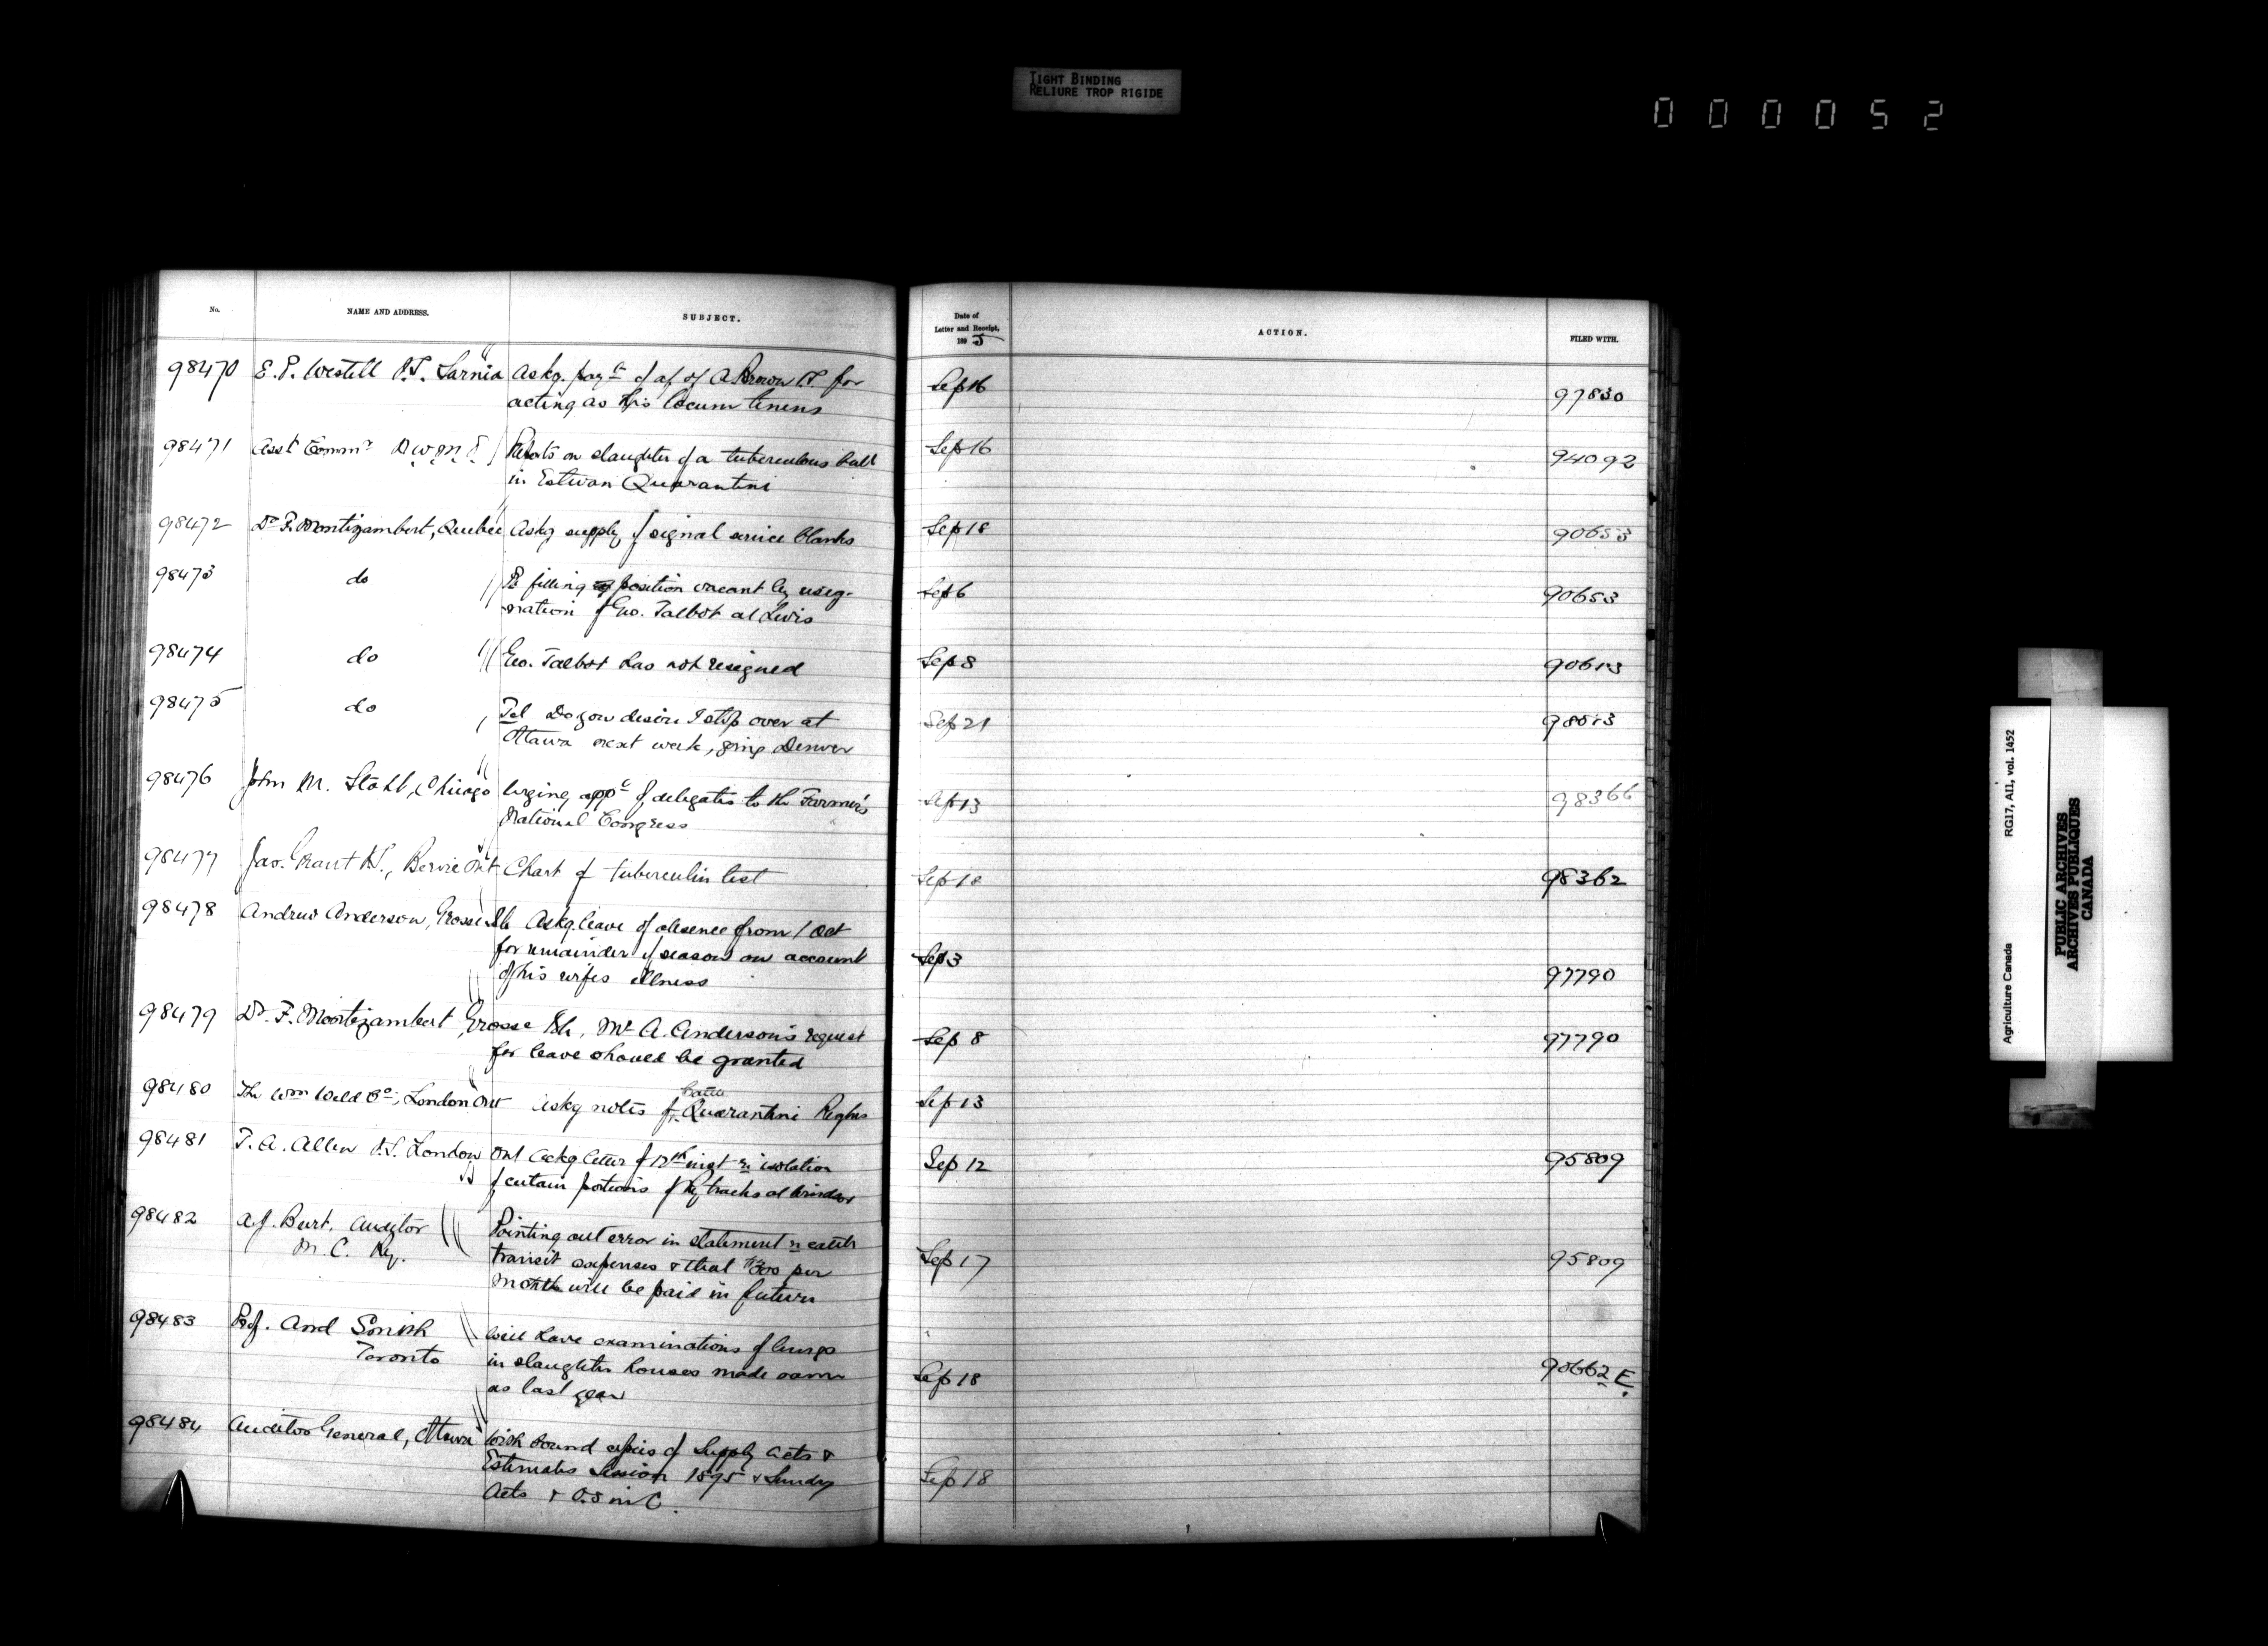 TIGHT BINDING
RELIURE TROP RIGIDE
000052
No.
NAME AND ADDRESS.
SUBJECT.
Date of
Letter and Receipt,
1895
ACTION.
FILED WITH.
98470 E. P. Westell V.S. Sarnia Askg. paymt of a/c of A Brown V.S. for Sep 16 97830
acting as his locum tenens
98471 Asst Commr N W M P Reports on slaughter of a tuberculous bull Sep 16 94092
in Estevan Quarantine
98472 Dr F. Montizambert, Quebec Askg supply of signal service blanks Sep 18 90653
98473 do Re filling of position vacant by resig- Sep 6 90653
nation of Geo. Talbot at Levis
98474 do Geo. Talbot has not resigned Sep 8 90613
98475 do Tel Do you desire I stop over at Sep 21 98013
Ottawa next week, going Denver
98476 John M. Stahl, Chicago Urging appt of delegates to the Farmer's Sep 13 98366
National Congress
98477 Jas. Grant V.S., Bervie Ont Chart of tuberculin test Sep 18 98362
98478 Andrew Anderson, Grosse Isle Askg. leave of absence from 1 Oct
for remainder of season on account Sep 3
of his wifes illness 97790
98479 Dr. F. Montizambert Grosse Isle, Mr A. Anderson's request Sep 8 97790
for leave should be granted
98480 The Wm Weld Co, London Ont Askg notes fr. Cattle Quarantine Regtns Sep 13
98481 T. A. Allen V.S. London Ont Ackg letter of 12th inst re isolation Sep 12 95809
of certain portions of Ry tracks at Windsor
98482 A. J. Burt, Auditor Pointing out error in statement re cattle
M. C. Ry. transit expenses & that $300 per Sep 17 95809
month will be paid in future
98483 Prof. And Smith Will have examinations of lungs
Toronto in slaughter houses made same Sep 18 90662 E.
as last year
98484 Auditor General, Ottawa Wish bound copies of Supply Acts &
Estimates Session 1895 & Sundry Sep 18
Acts & O.S in C.
Agriculture Canada RG17, AII, vol. 1452
PUBLIC ARCHIVES
ARCHIVES PUBLIQUES
CANADA